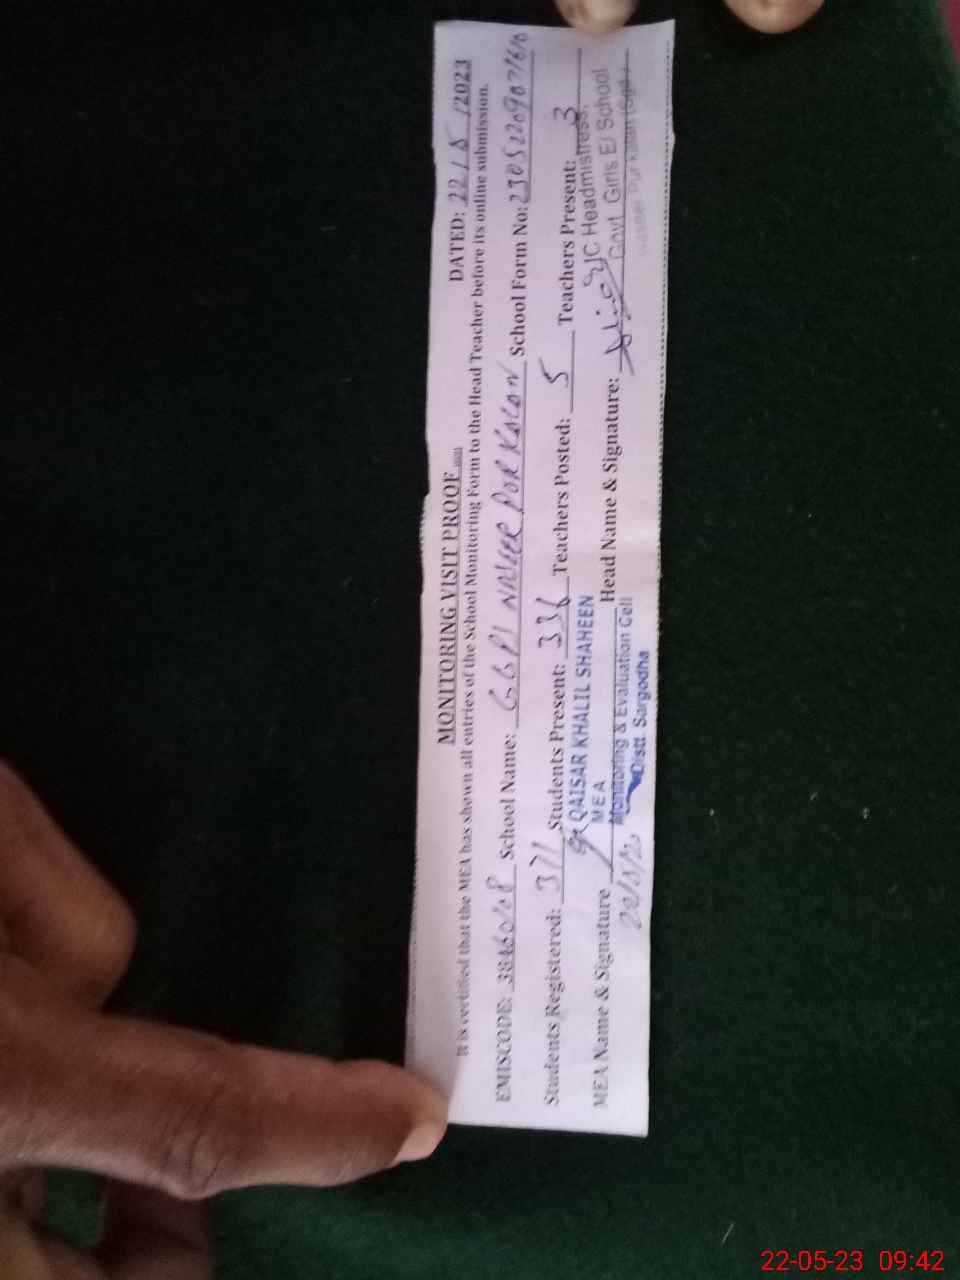 MONITORING VISIT PROOF
DATED: 22 / 5 /2023
It is certified that the MEA has shown all entries of the School Monitoring Form to the Head Teacher before its online submission.
EMISCODE: School Name: GGPS NASEER POR KALAN School Form No:
Students Registered: 371 Students Present: 336 Teachers Posted: 5 Teachers Present: 3
QAISAR KHALIL SHAHEEN
MEA
MEA Name & Signature Head Name & Signature:
Monitoring & Evaluation Cell
Distt. Sargodha
Headmistress,
Govt Girls El School
Naseer Pur Kalan (Sgd.)
22-05-23 09:42